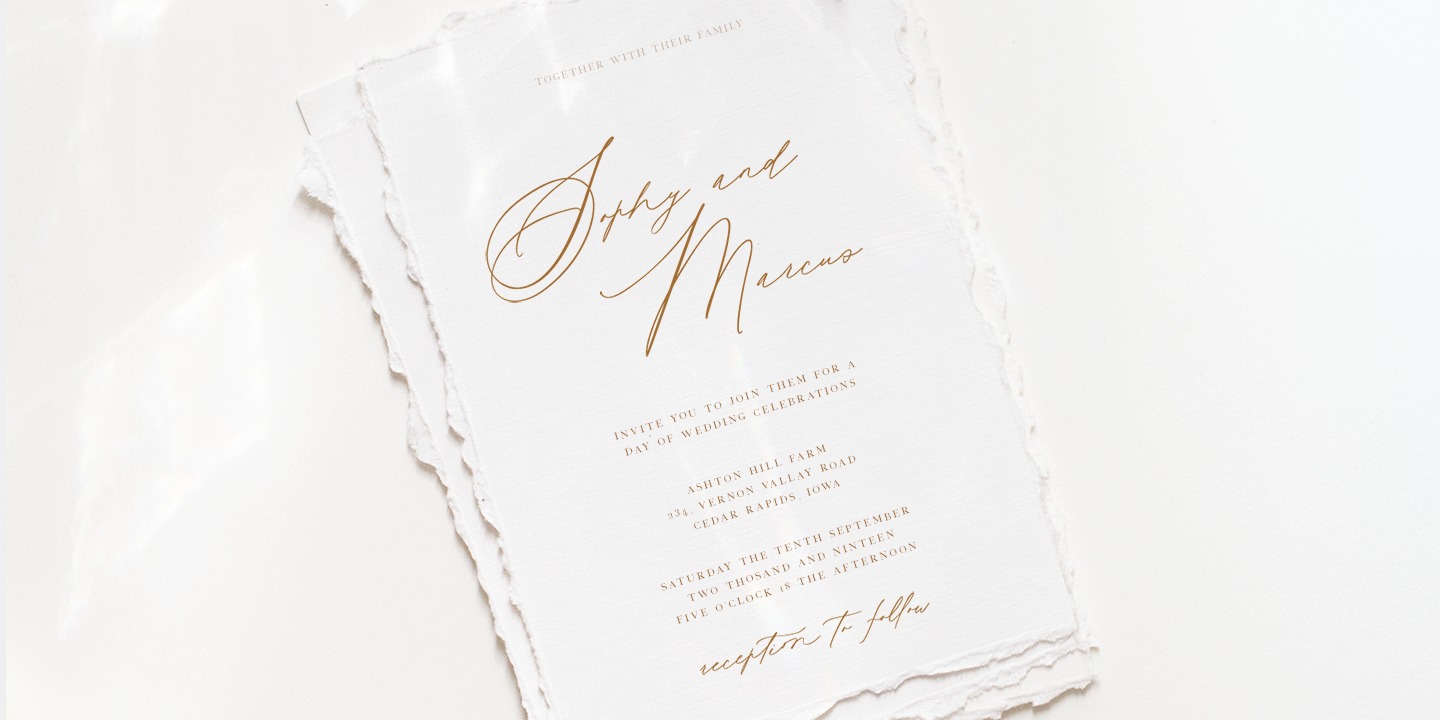 TOGETHER WITH THEIR FAMILY
Sophy and
Marcus
INVITE YOU TO JOIN THEM FOR A
DAY OF WEDDING CELEBRATIONS
ASHTON HILL FARM
234, VERNON VALLAY ROAD
CEDAR RAPIDS, IOWA
SATURDAY THE TENTH SEPTEMBER
TWO THOSAND AND NINTEEN
FIVE O'CLOCK 18 THE AFTERNOON
reception to follow